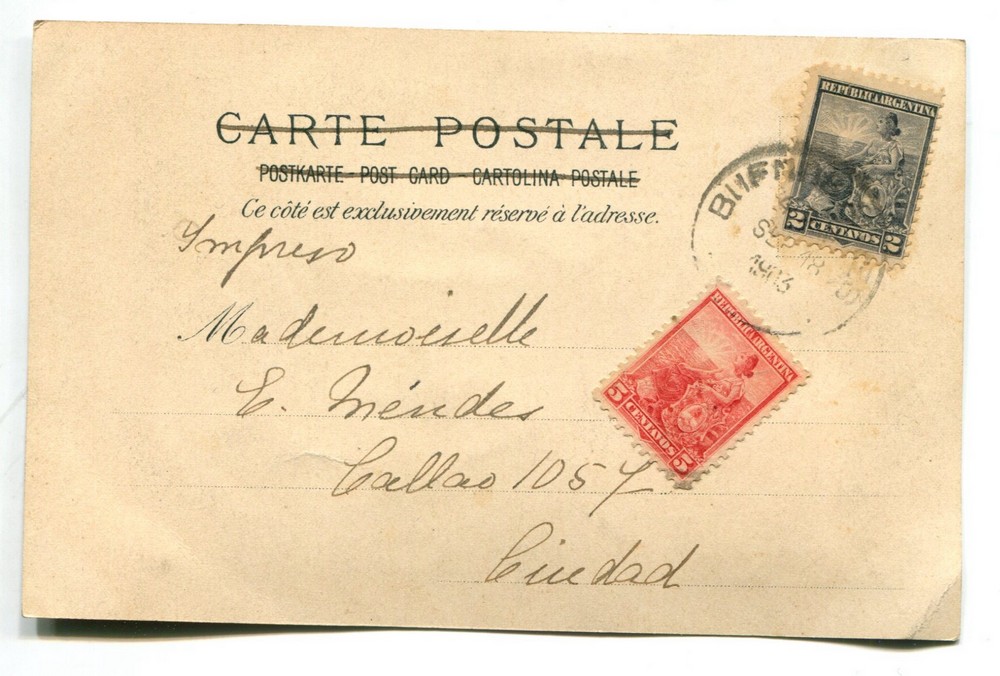 CARTE POSTALE
POSTKARTE - POST CARD - CARTOLINA POSTALE
Ce côté est exclusivement réservé à l'adresse.
Impreso
Mademoiselle
E. Méndes
Callao 1057
Ciudad
REPÚBLICA ARGENTINA
2 CENTAVOS 2
BUEN
18
1903
REPÚBLICA ARGENTINA
5 CENTAVOS 5